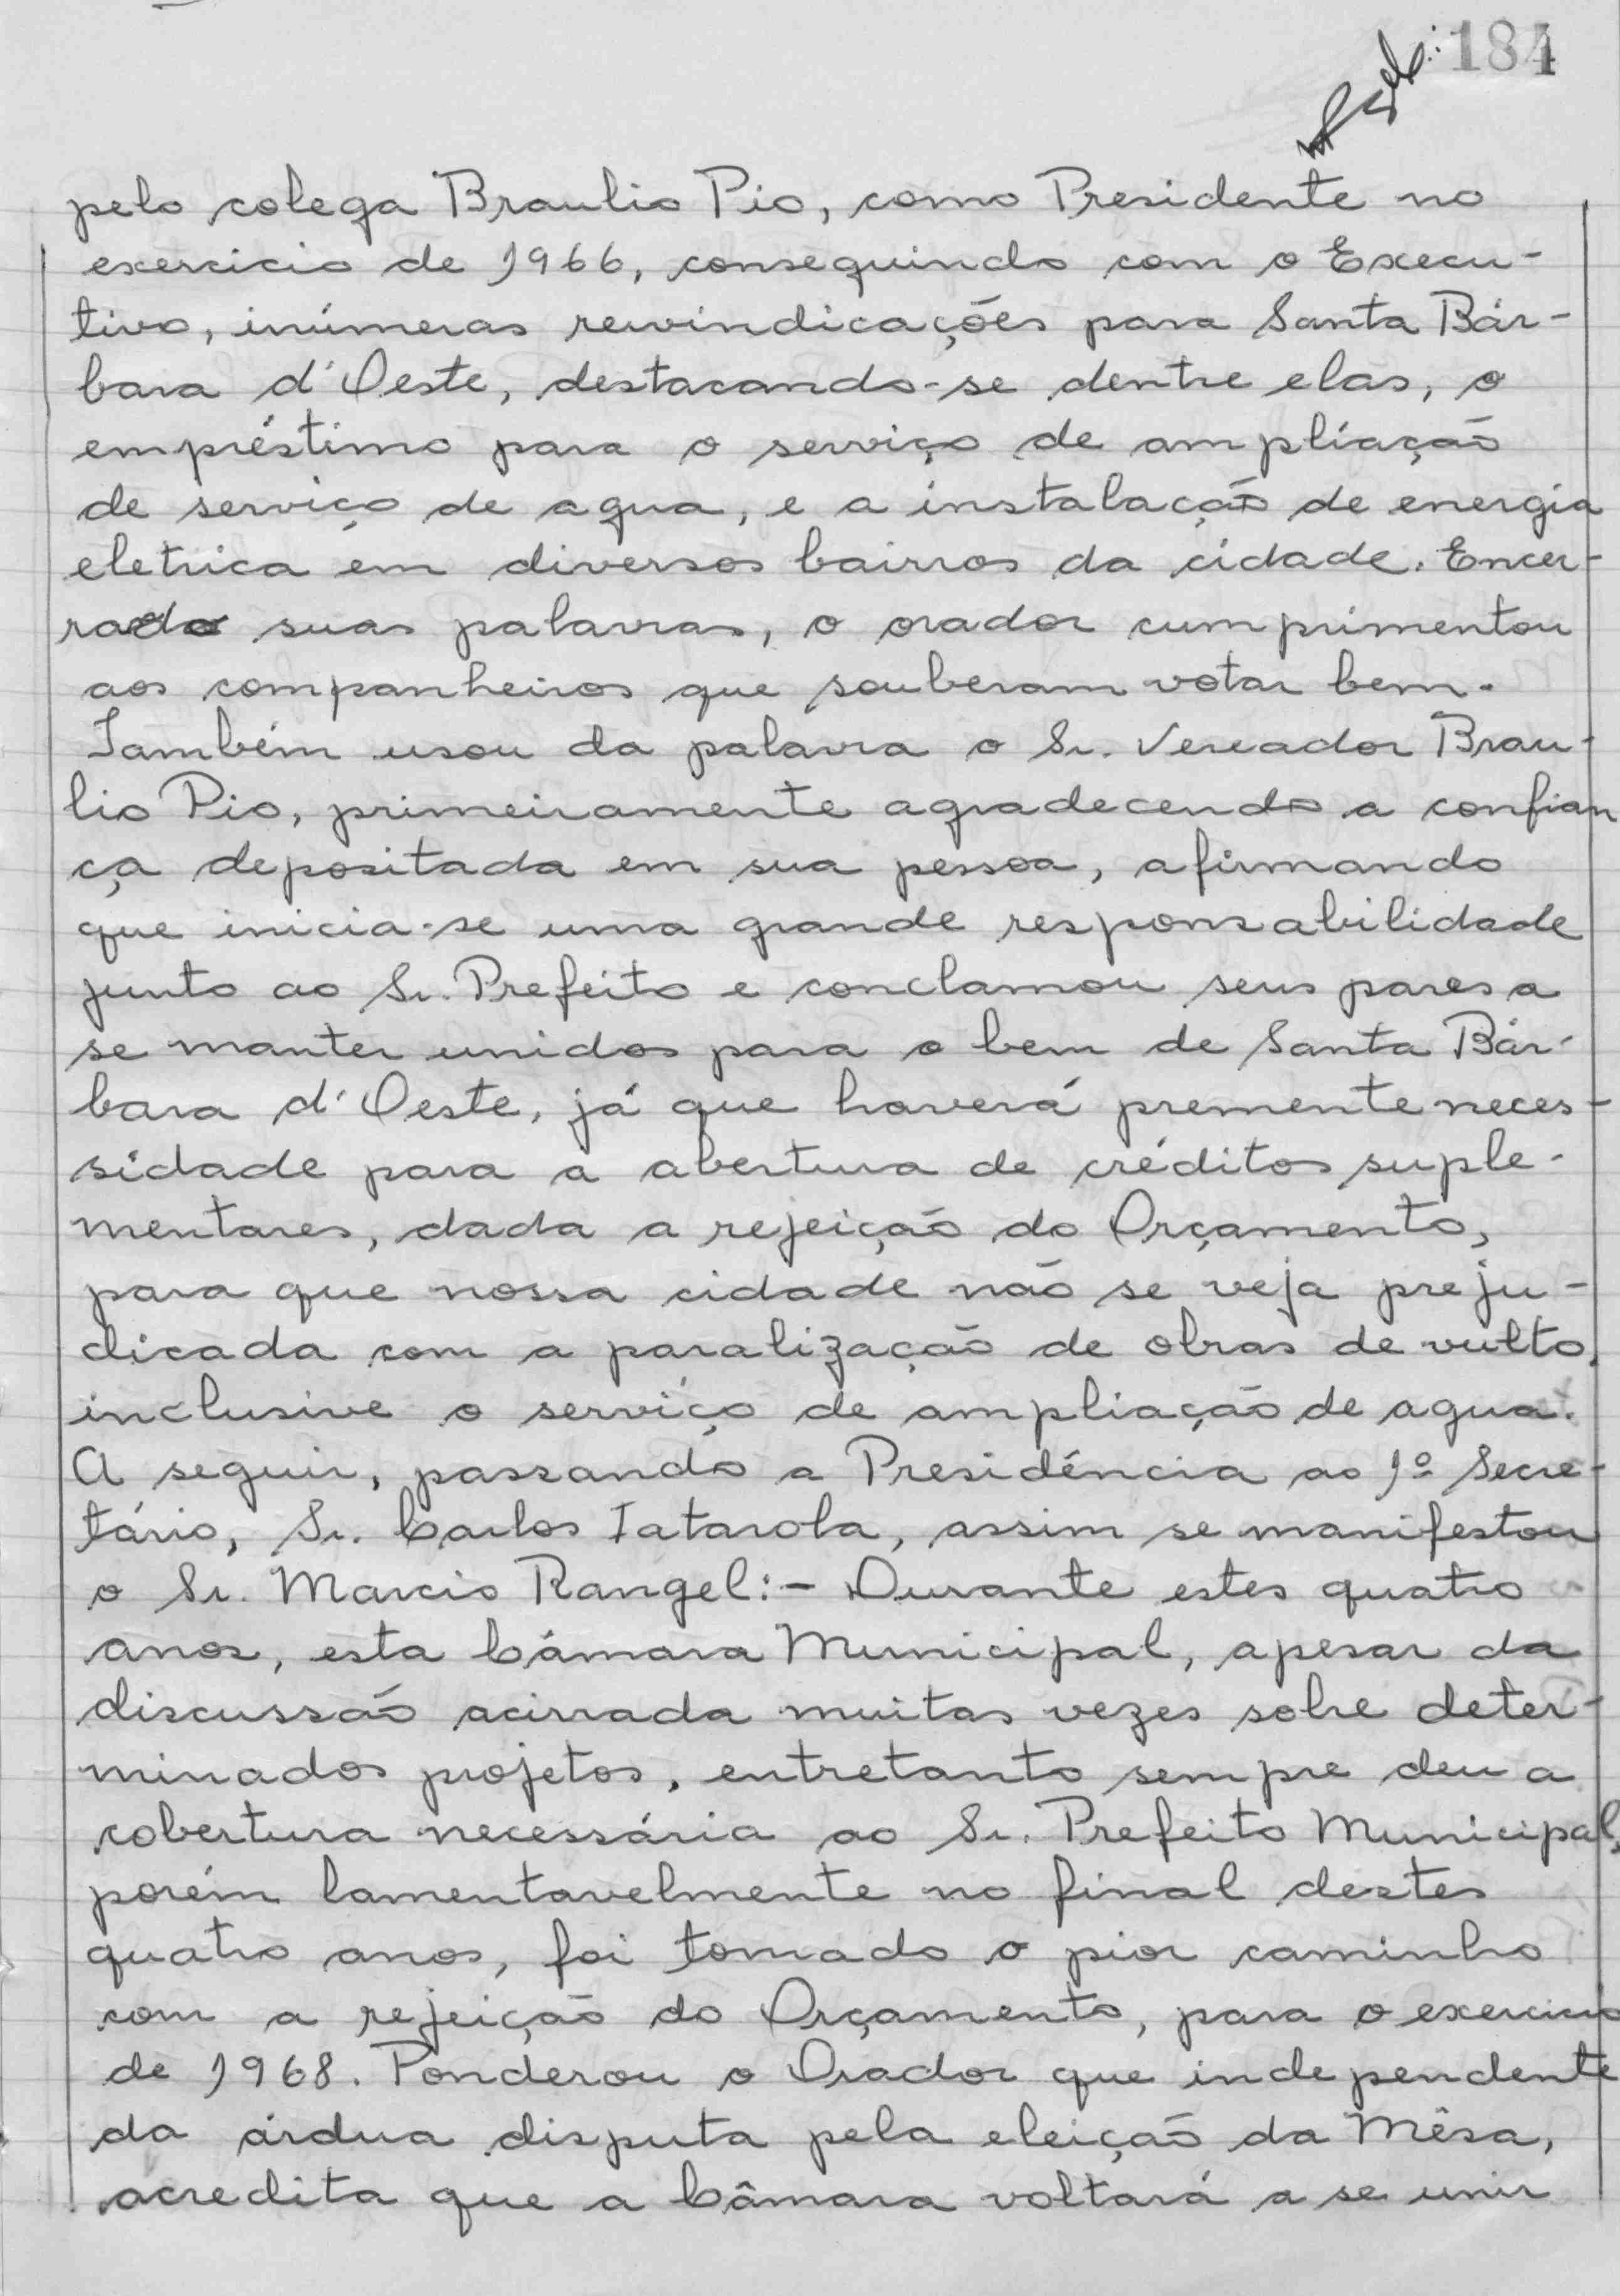 184
pelo colega Braulio Pio, como Presidente no
exercicio de 1966, conseguindo com o Execu-
tivo, inúmeras reivindicações para Santa Bár-
bara d'Oeste, destacando-se dentre elas, o
empréstimo para o serviço de ampliação
de serviço de agua, e a instalação de energia
eletrica em diversos bairros da cidade. Encer-
rado suas palavras, o orador cumprimentou
aos companheiros que souberam votar bem.
Também usou da palavra o Sr. Vereador Brau-
lio Pio, primeiramente agradecendo a confian
ça depositada em sua pessoa, afirmando
que inicia-se uma grande responsabilidade
junto ao Sr. Prefeito e conclamou seus pares a
se manter unidos para o bem de Santa Bár-
bara d'Oeste, já que haverá premente neces-
sidade para a abertura de créditos suple-
mentares, dada a rejeição do Orçamento,
para que nossa cidade não se veja preju-
dicada com a paralização de obras de vulto,
inclusive o serviço de ampliação de agua.
A seguir, passando a Presidência ao 1º Secre-
tário, Sr. Carlos Tatarola, assim se manifestou
o Sr. Marcio Rangel:- Durante estes quatro
anos, esta Câmara Municipal, apesar da
discussão acirrada muitas vezes sobre deter-
minados projetos, entretanto sempre deu a
cobertura necessária ao Sr. Prefeito Municipal,
porém lamentavelmente no final destes
quatro anos, foi tomado o pior caminho
com a rejeição do Orçamento, para o exercicio
de 1968. Ponderou o Orador que independente
da árdua disputa pela eleição da Mêsa,
acredita que a Câmara voltará a se unir